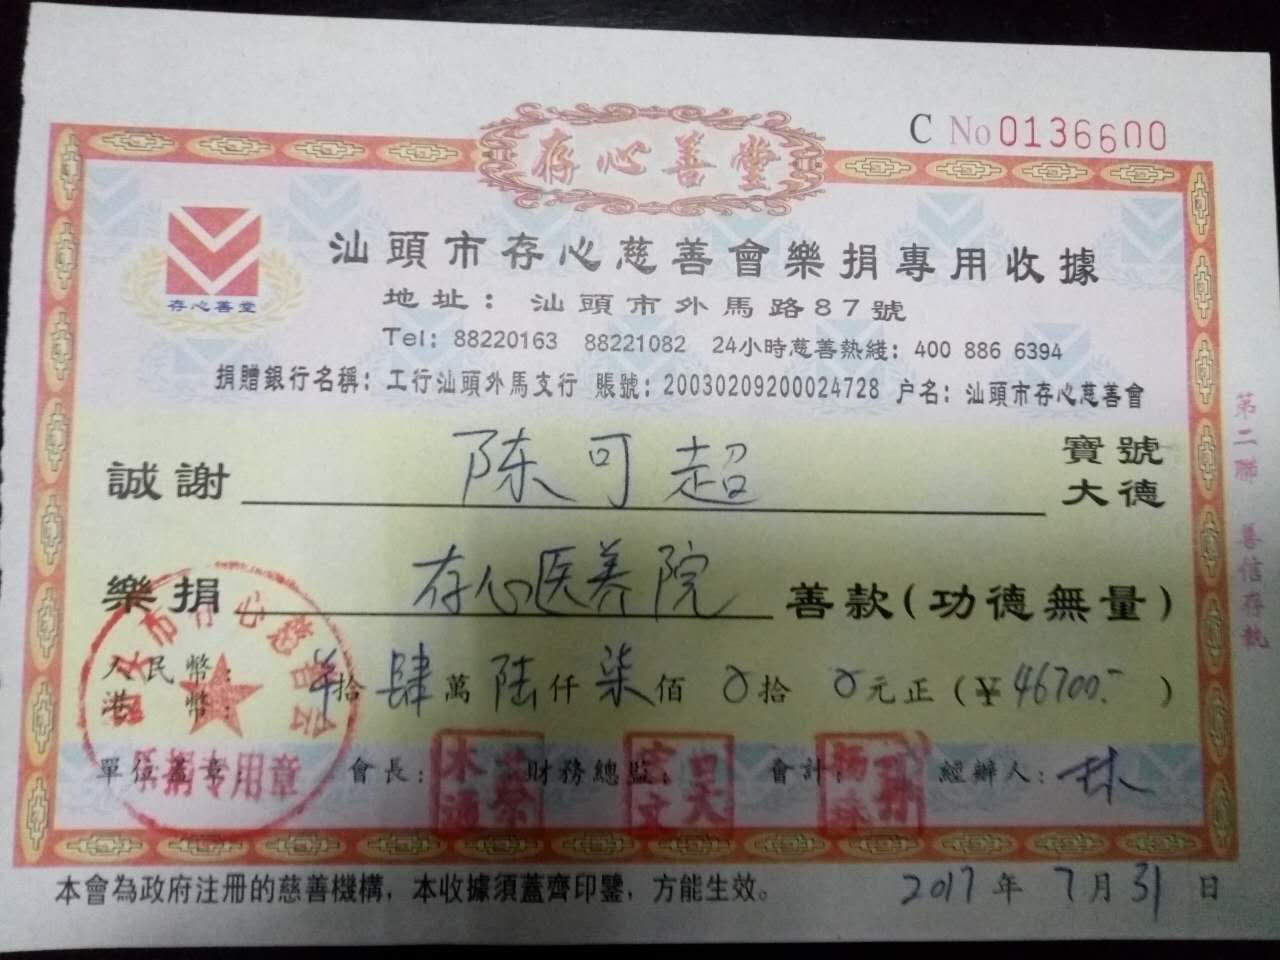 C No 0136600
存心善堂
存心善堂
汕頭市存心慈善會樂捐專用收據
地址：汕頭市外馬路87號
Tel: 88220163 88221082 24小時慈善熱綫：400 886 6394
捐贈銀行名稱：工行汕頭外馬支行 賬號：20030209200024728 户名：汕頭市存心慈善會
誠謝 陈可超 寶號
大德
樂捐 存心医养院 善款（功德無量）
人民幣：
港幣：
拾肆萬陆仟柒佰0拾0元正（¥46700.-）
單位蓋章： 會長： 財務總監： 會計： 經辦人：林
专用章
本會為政府注冊的慈善機構，本收據須蓋齊印鑒，方能生效。 2017年7月31日
第二聯 善信存執